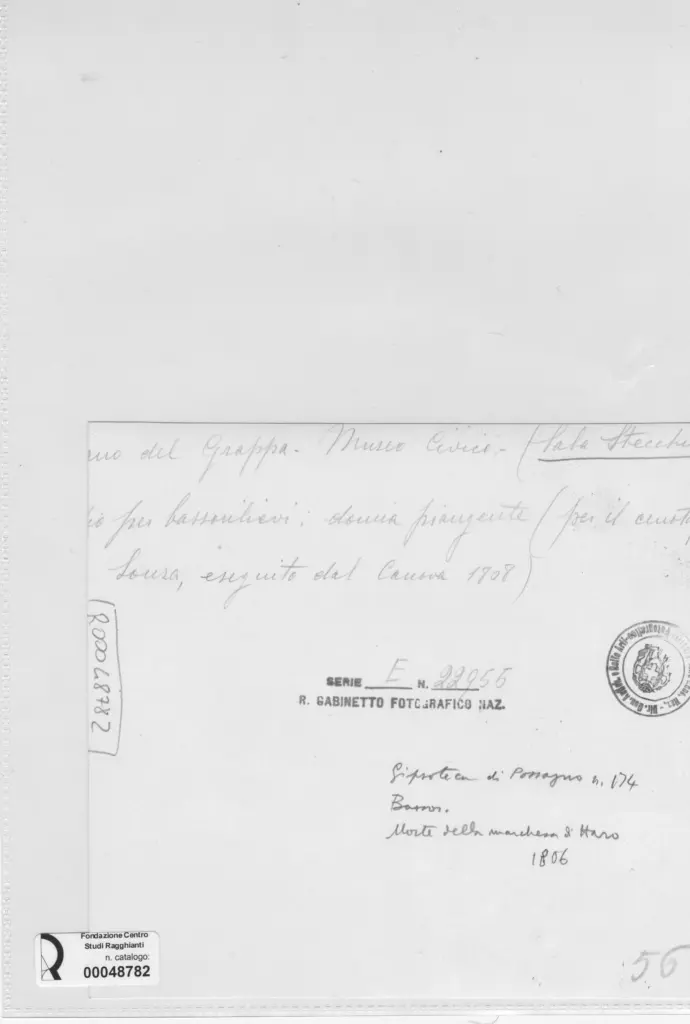 del Grappa - Museo Civico. - (Sala
per bassorilievi: donna piangente (per il
Souza, eseguito dal Canova 1808)
R00048782
SERIE E N. 22956
R. GABINETTO FOTOGRAFICO NAZ.
Gipsoteca di Possagno n. 174
Morte della marchesa d'Haro
1806
Fondazione Centro
Studi Ragghianti
n. catalogo:
00048782
56